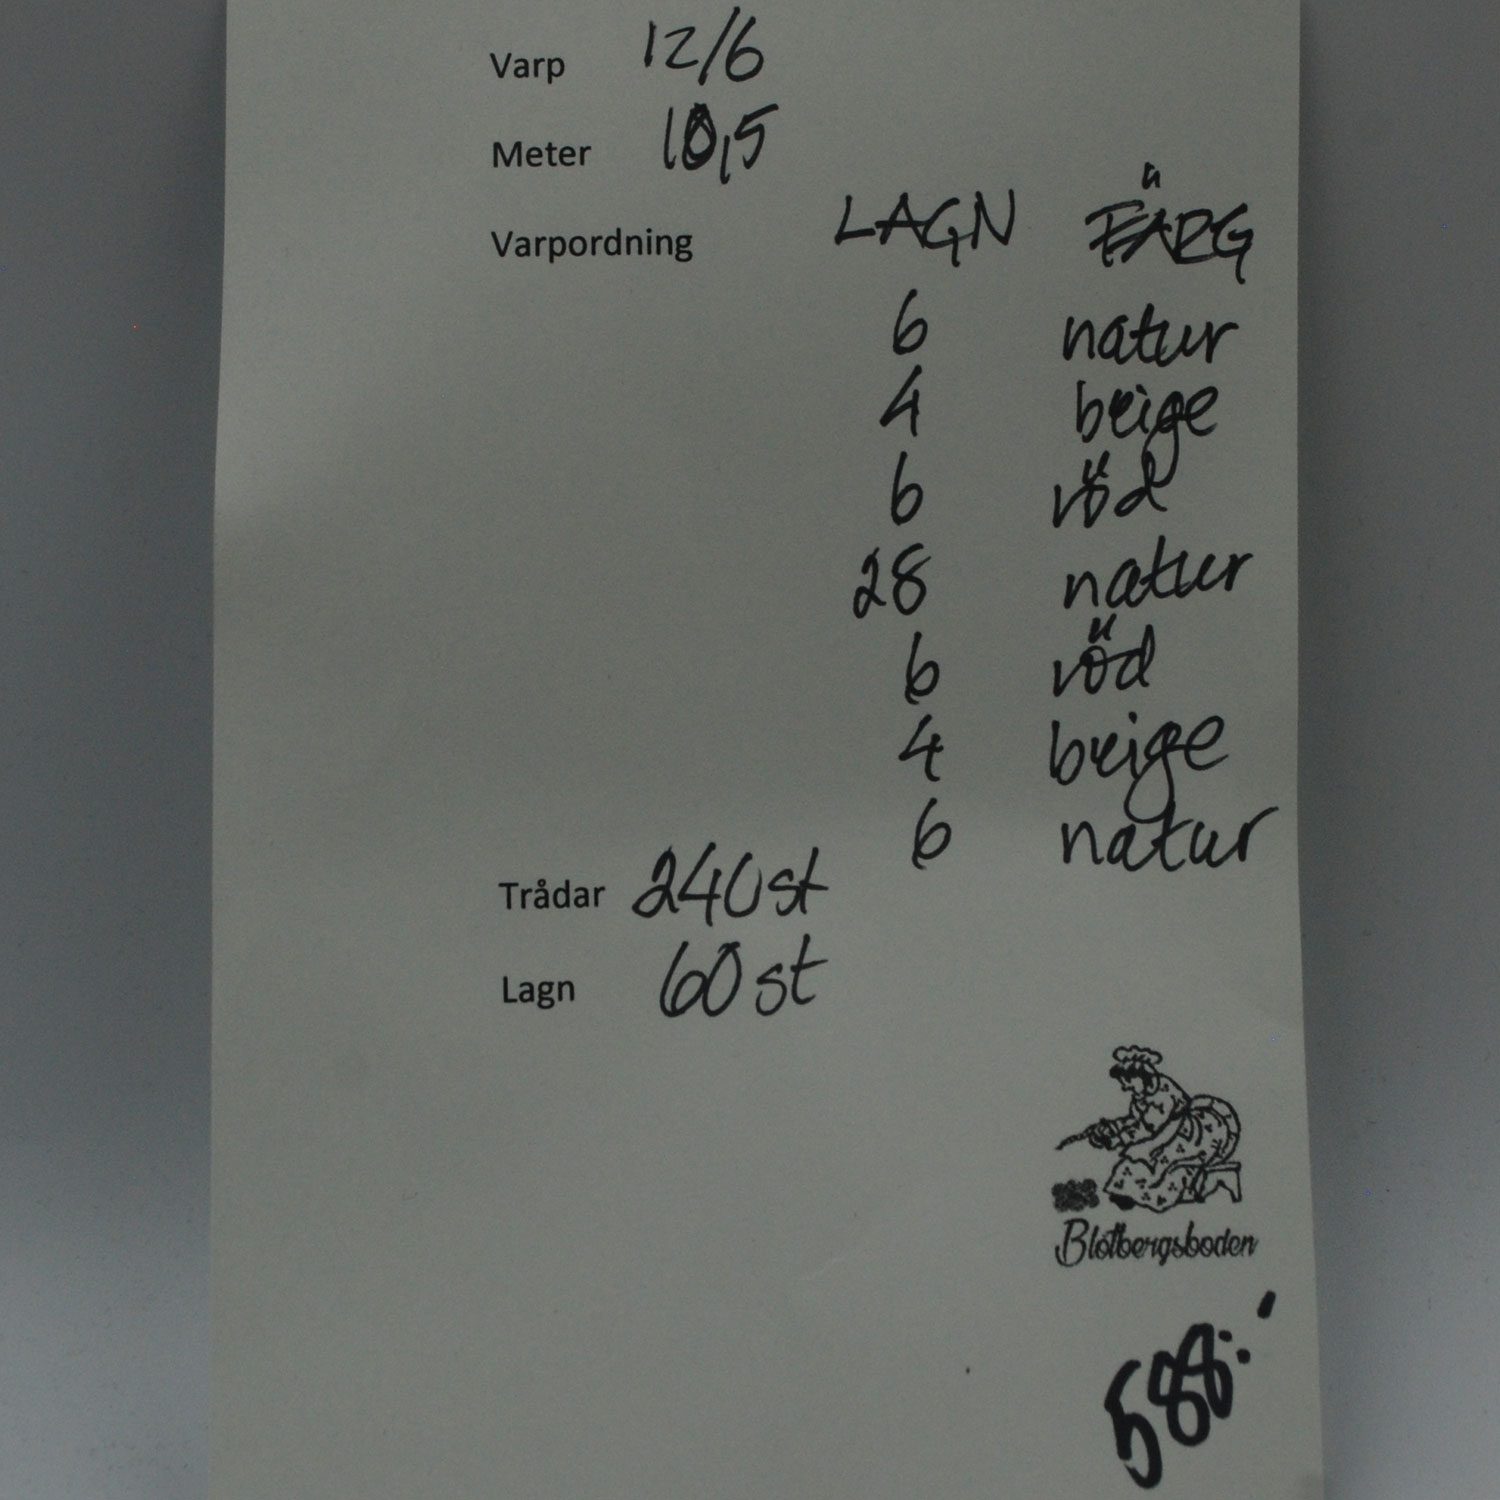 Varp 12/6
Meter 10,5
Varpordning LAGN FÄRG
6 natur
4 beige
6 röd
28 natur
6 röd
4 beige
6 natur
Trådar 240 st
Lagn 60 st
Blötbergsboden
588:-